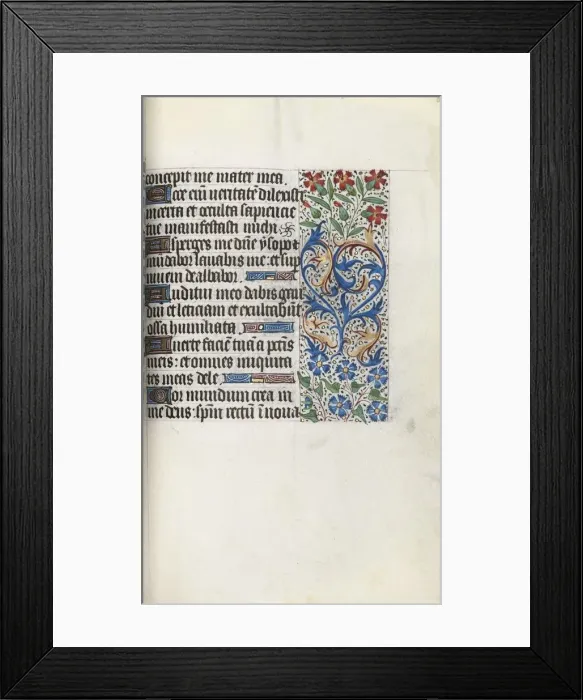 concepit me mater mea.
Ecce eni̅ ueritate̅ dilexisti
incerta et occulta sapiencie
tue manifestasti michi
Asperges me dn̅e ysopo et
mu̅dabor lauabis me: et sup
niuem dealbabor.
Auditui meo dabis gau
diu̅ et leticiam et exultabu̅t
ossa humiliata.
Auerte facie̅ tua̅ a pctis
meis: et omnes iniquita
tes meas dele.
Cor mundum crea in
me deus: spm̅ rectu̅ i̅noua